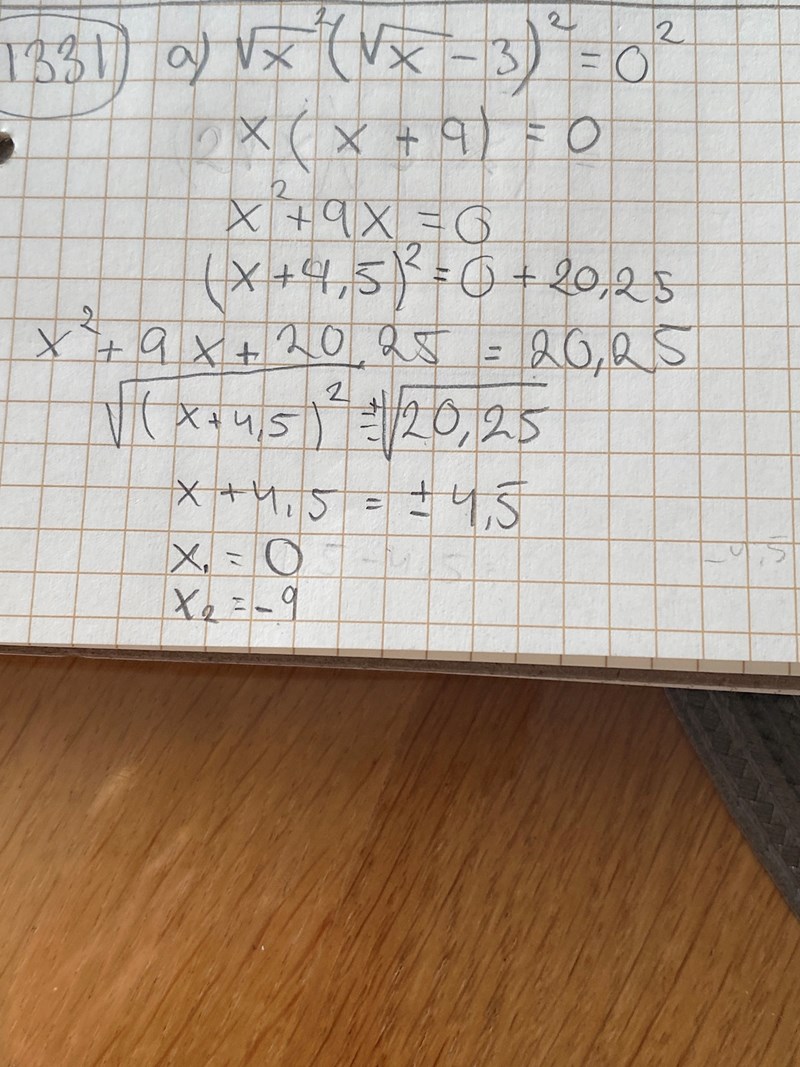 1331) a) √x²(√x - 3)² = 0²
x(x + 9) = 0
x² + 9x = 0
(x + 4,5)² = 0 + 20,25
x² + 9x + 20,25 = 20,25
√(x + 4,5)² = ±√20,25
x + 4,5 = ± 4,5
x₁ = 0
x₂ = -9